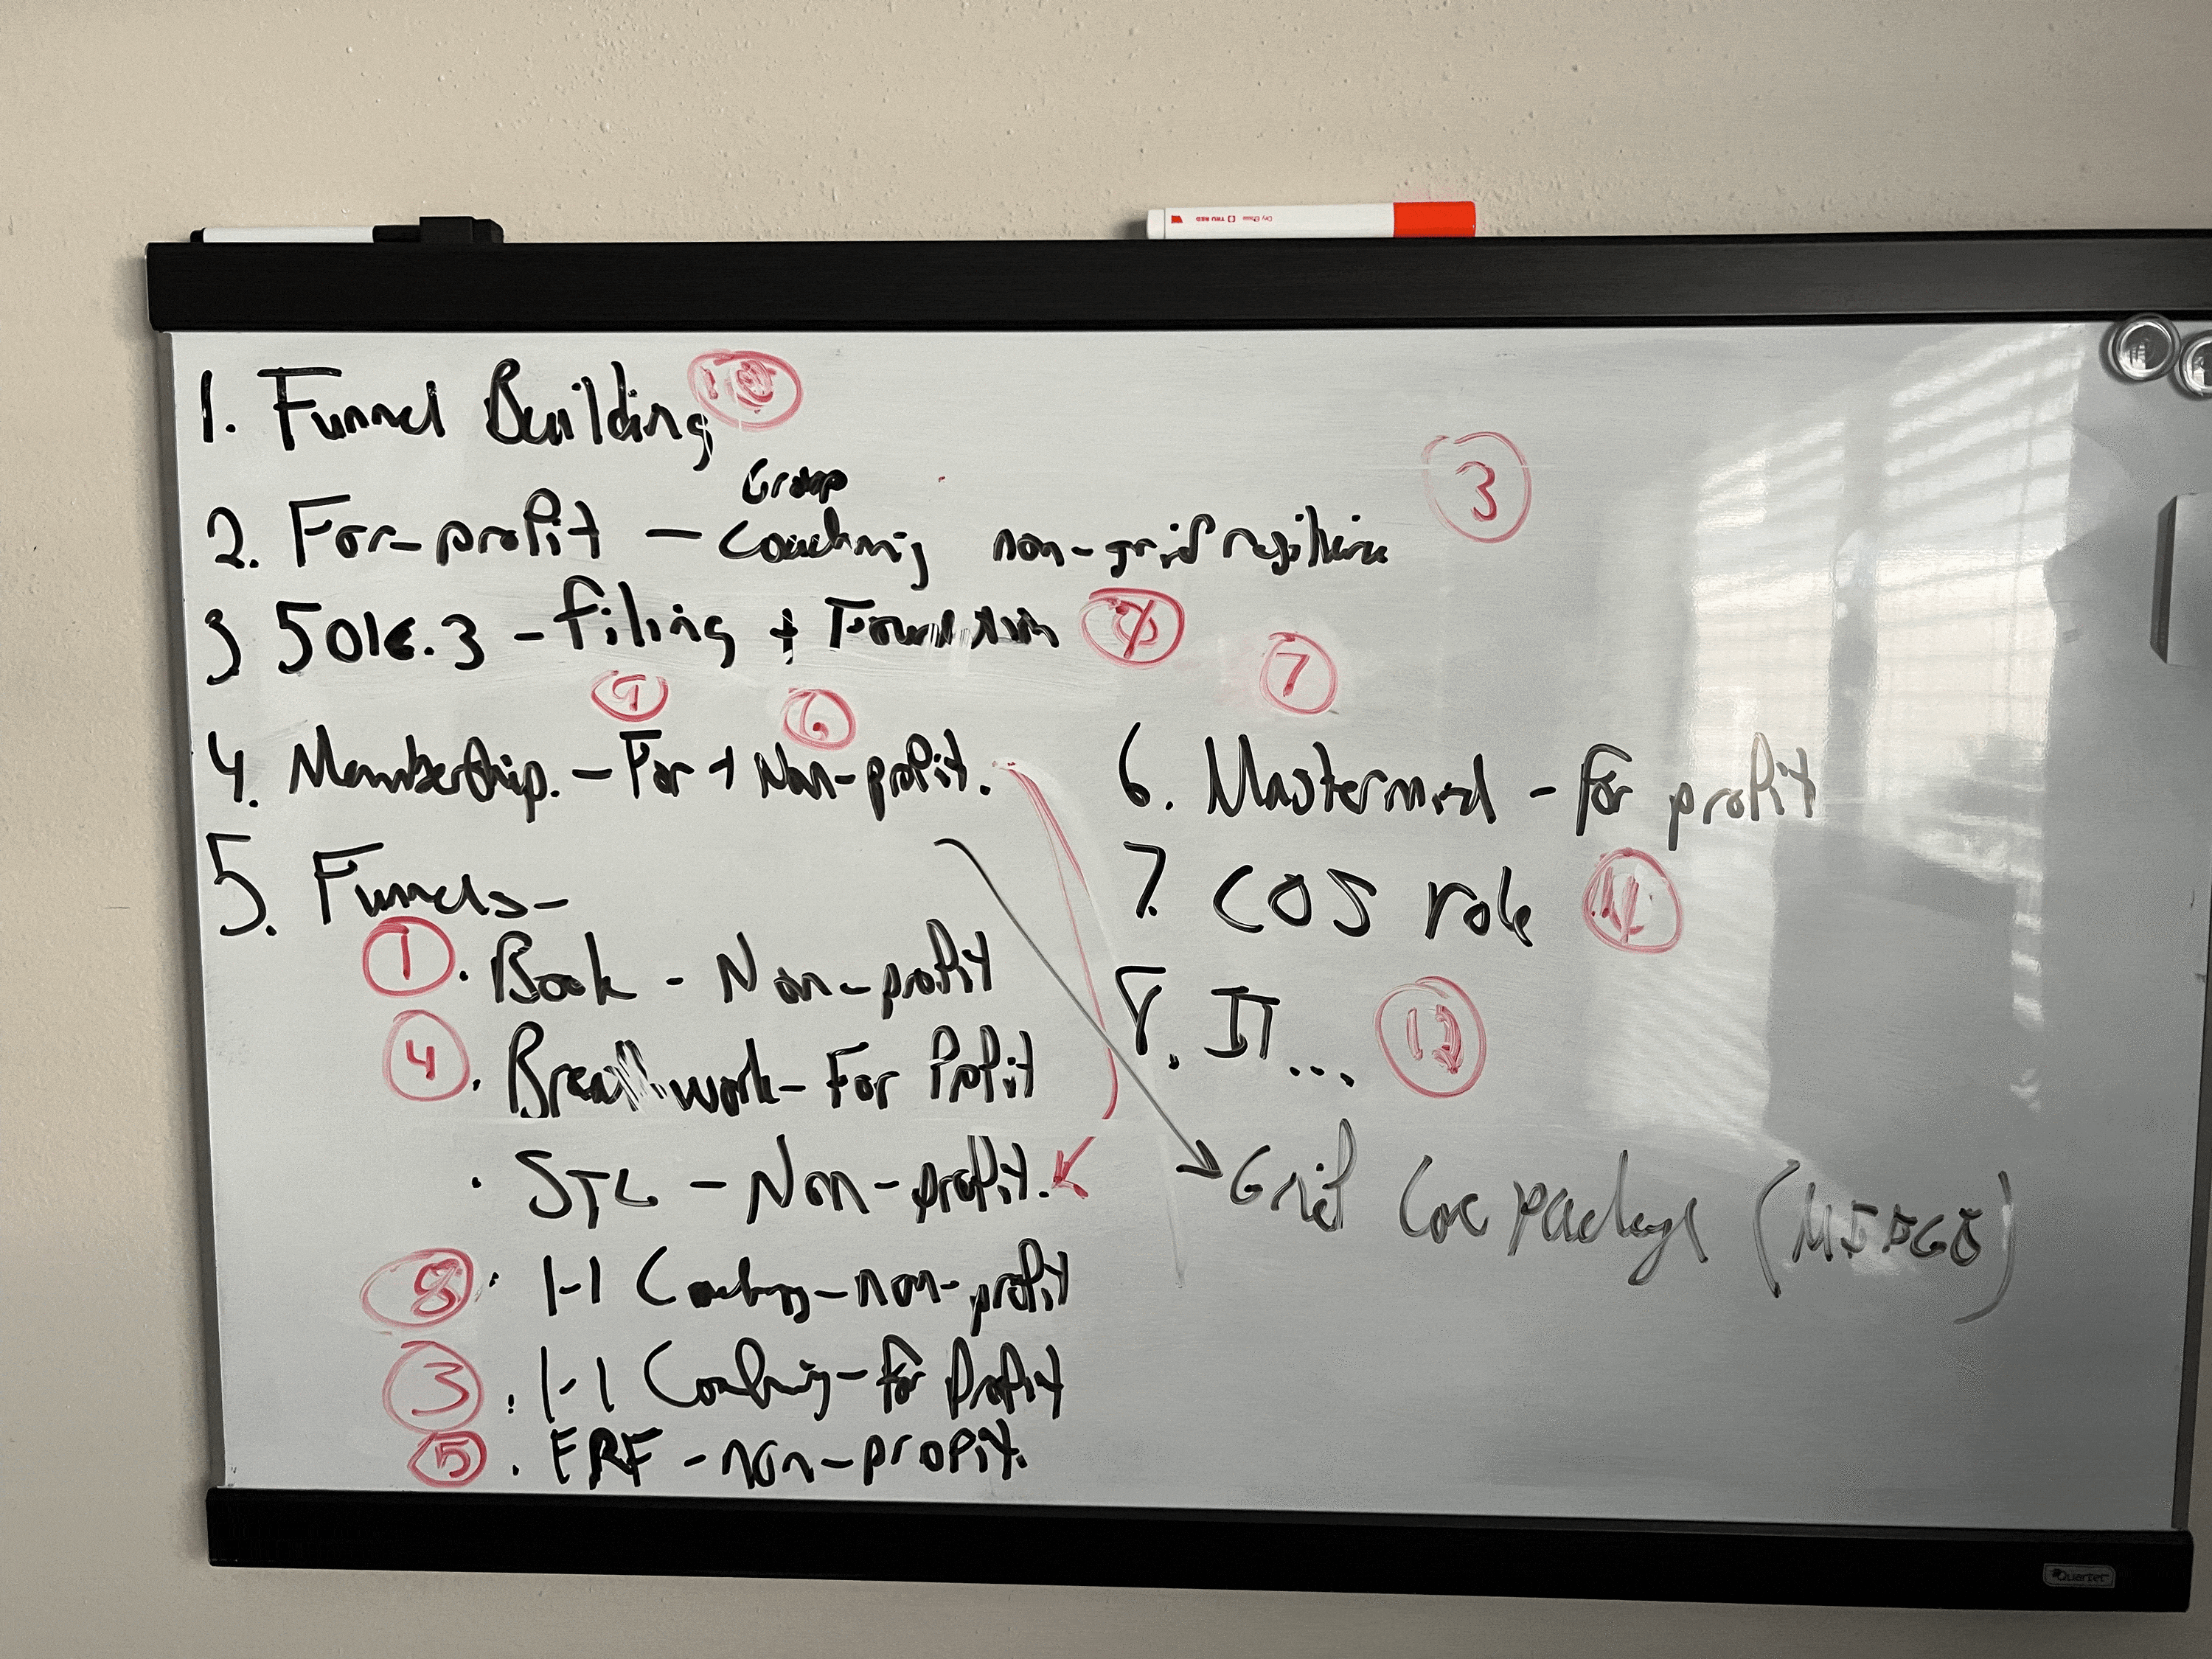 1. Funnel Building
Group
2. For-profit - Coaching non-grief resilience 3
3 501c.3 - filing +
9 6 7
4. Membership. - For + Non-profit.
5. Funnels-
1 · Book - Non-profit
4 · Breathwork - For Profit
· STC - Non-profit.
8 · 1-1 Coaching - non-profit
3 · 1-1 Coaching - For Profit
5 · ERF - non-profit.
6. Mastermind - For profit
7. COS role
8. IT...
Grief Core package
Quartet
TRU RED